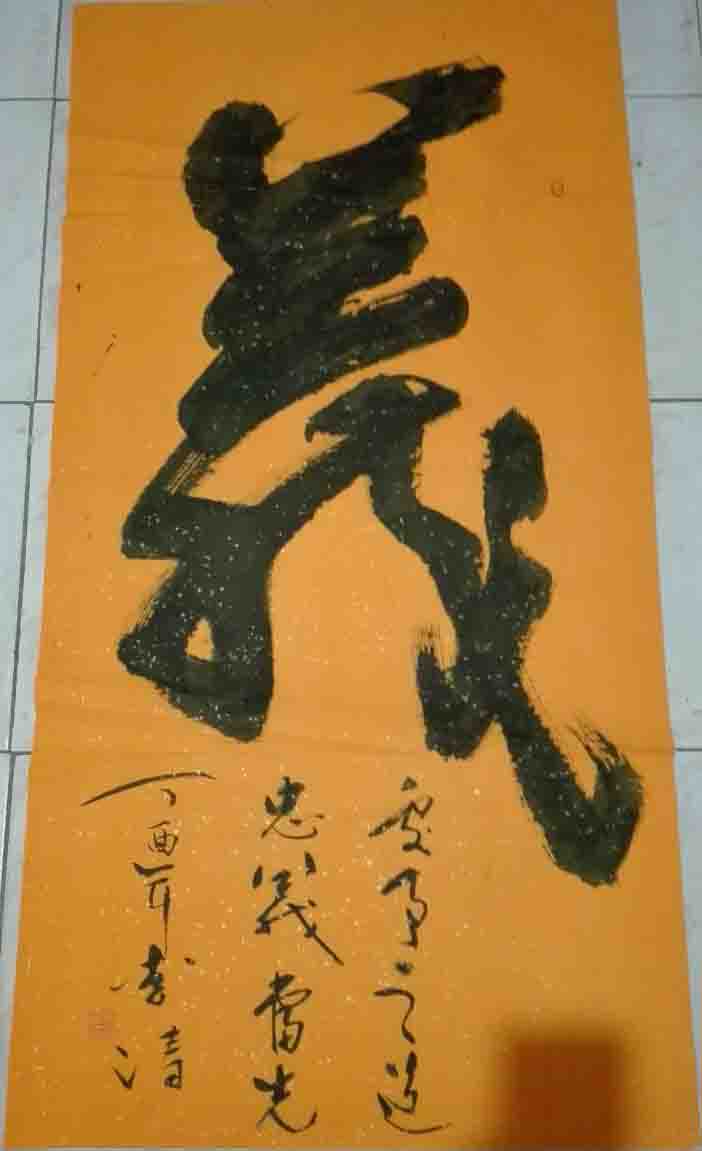 義
處事之道
忠義當先
丁酉年李清